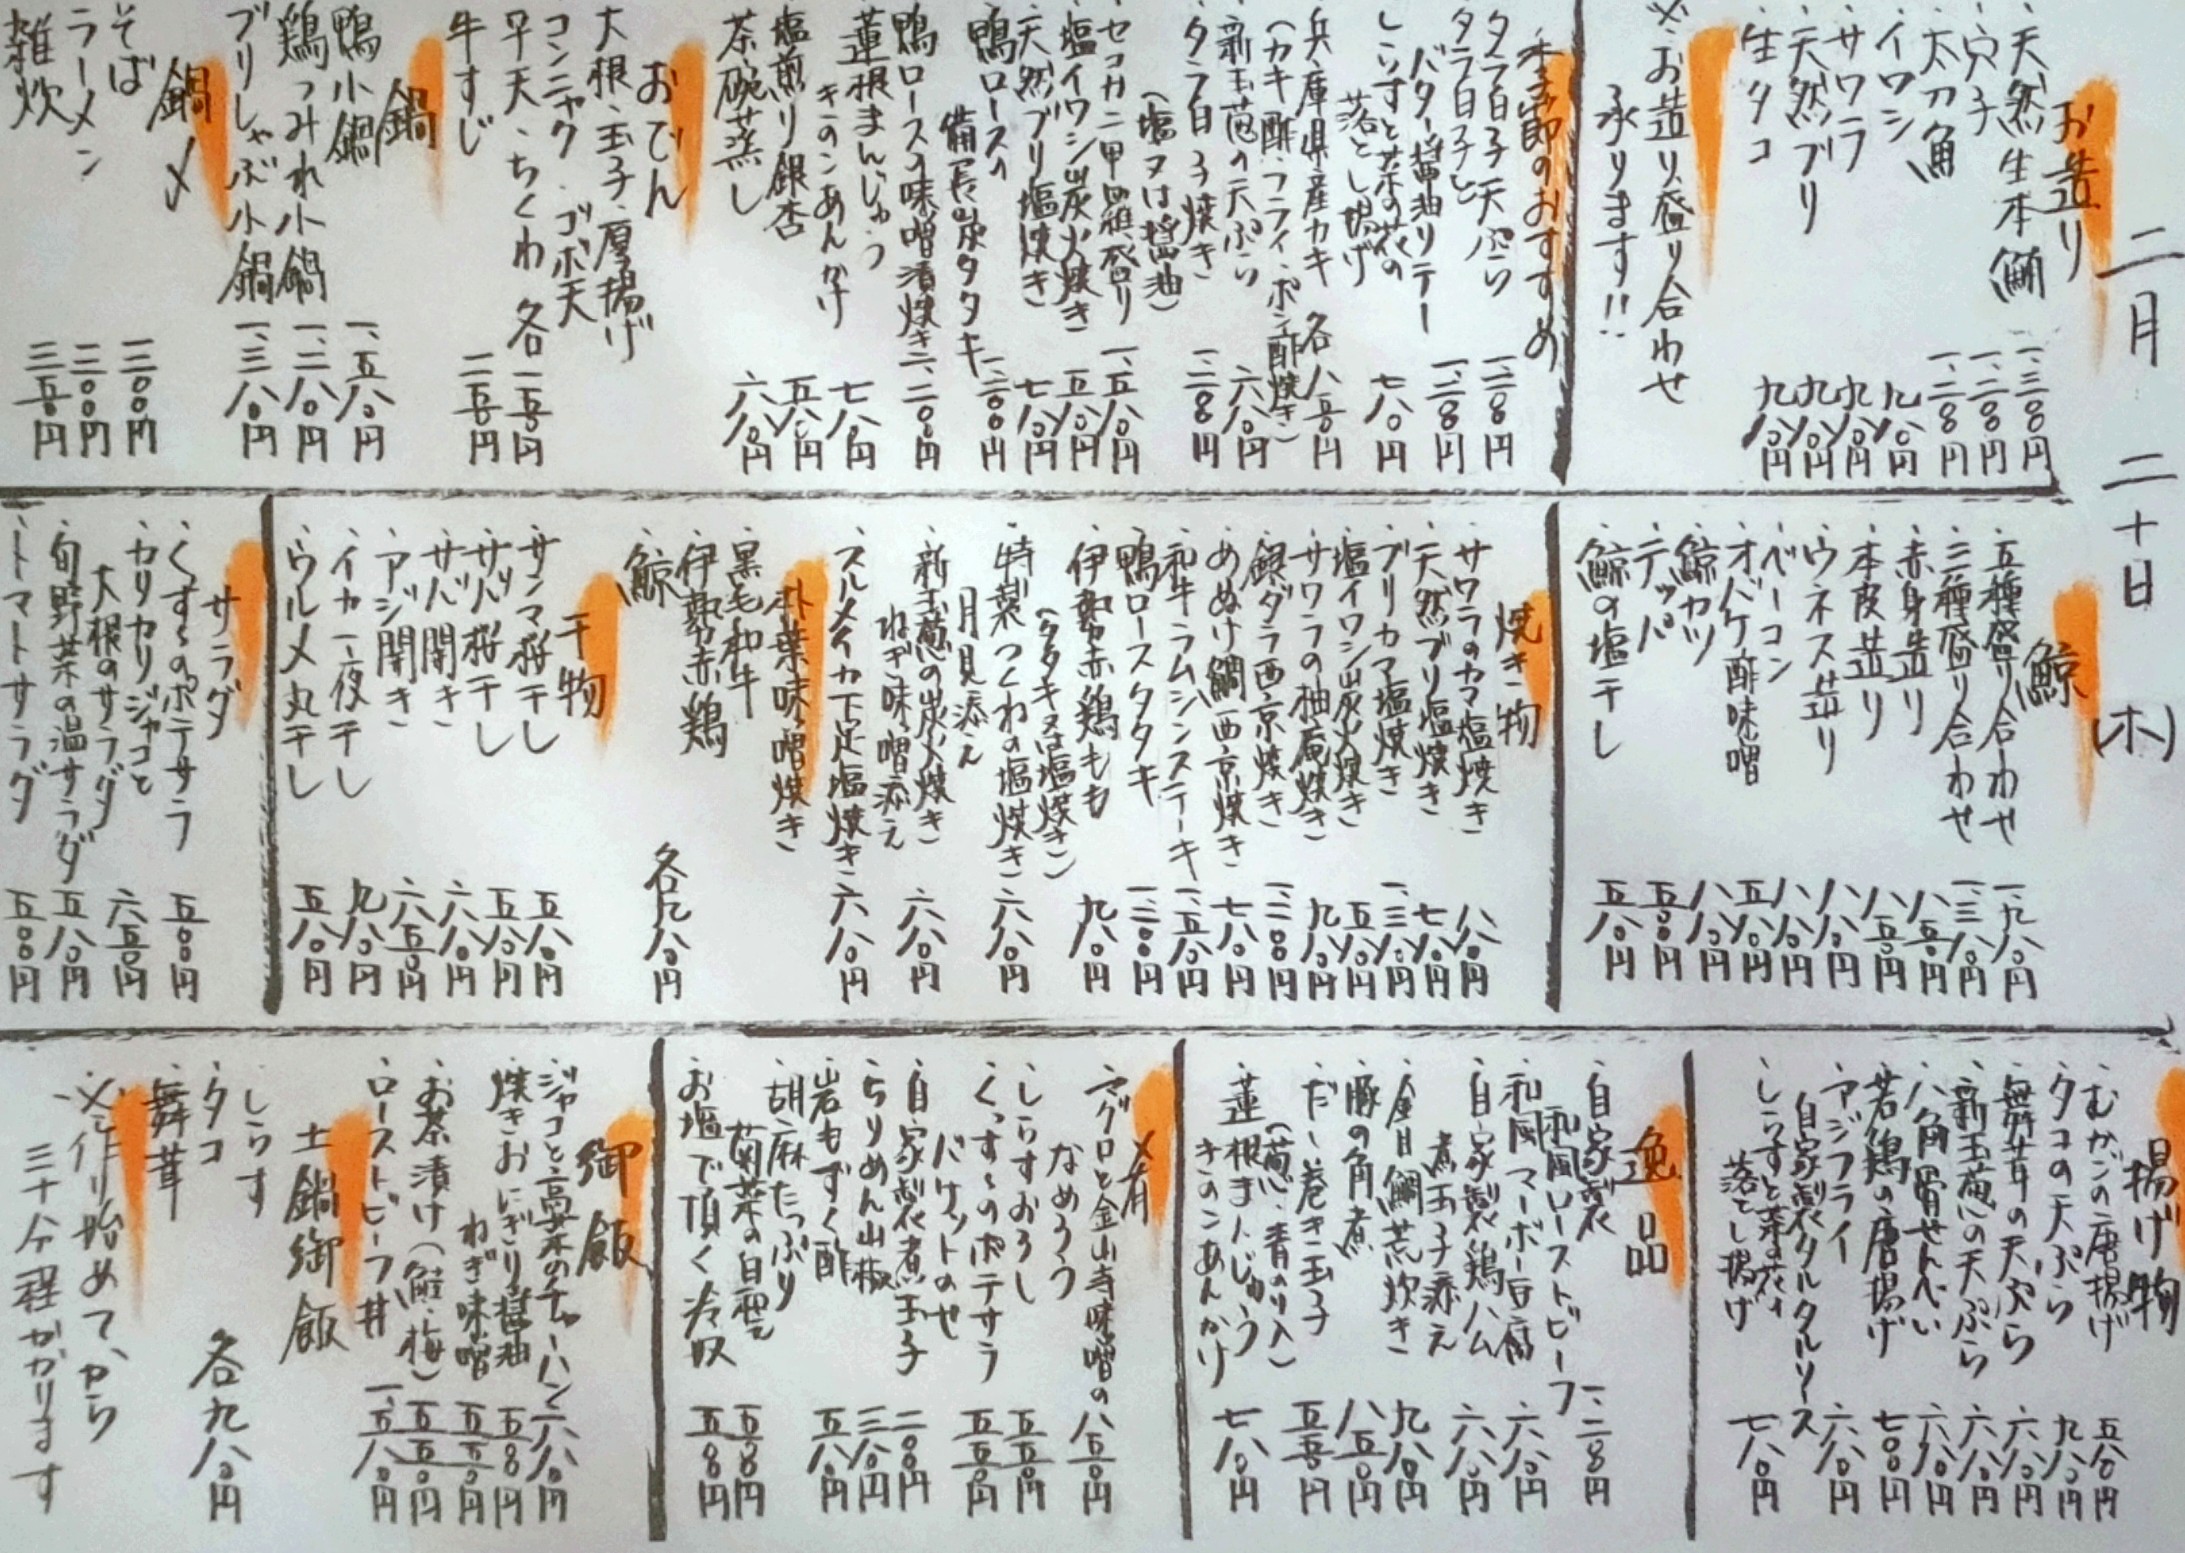 二月二十日(木)
お造り
・天然生本鮪 一、三〇〇円
・穴子 一、二〇〇円
・太刀魚 一、二〇〇円
・イワシ 九八〇円
・サワラ 九八〇円
・天然ブリ 九八〇円
・生タコ 九八〇円
※お造り盛り合わせ
承ります!!
季節のおすすめ
・タラ白子天ぷら 一、二〇〇円
・タラ白子と
バター醤油ソテー 一、二〇〇円
・しらすと菜の花の
落とし揚げ 七八〇円
・兵庫県産カキ 各八五〇円
(カキ酢・フライ・ポン酢焼き)
・新玉葱の天ぷら 六八〇円
・タラ白子焼き 一、二〇〇円
(塩又は醤油)
・セコガニ甲羅盛り 一、五八〇円
・塩イワシ炭火焼き 五八〇円
・天然ブリ塩焼き 七八〇円
・鴨ロースの
備長炭タタキ 一、二〇〇円
・鴨ロースの味噌漬焼き 一、二〇〇円
・蓮根まんじゅう
きのこあんかけ 七八〇円
・塩煎り銀杏 五八〇円
・茶碗蒸し 六八〇円
おでん
・大根・玉子・厚揚げ
コンニャク・ゴボ天
平天・ちくわ 各一五〇円
・牛すじ 二五〇円
鍋
・鴨小鍋 一、五八〇円
・鶏つみれ小鍋 一、二八〇円
・ブリしゃぶ小鍋 一、三八〇円
鍋〆
・そば 二〇〇円
・ラーメン 二〇〇円
・雑炊 三五〇円
鯨
・五種盛り合わせ 一、九八〇円
・三種盛り合わせ 一、三八〇円
・赤身造り 八五〇円
・本皮造り 八五〇円
・ウネス造り 八八〇円
・ベーコン 八八〇円
・オバケ酢味噌 五八〇円
・鯨カツ 八八〇円
・テッパ 五〇〇円
・鯨の塩干し 五八〇円
焼き物
・サワラのカマ塩焼き 八八〇円
・天然ブリ塩焼き 七八〇円
・ブリカマ塩焼き 一、三八〇円
・塩イワシ炭火焼き 五八〇円
・サワラの柚庵焼き 九八〇円
・銀ダラ西京焼き 一、二〇〇円
・めぬけ鯛西京焼き 七八〇円
・和牛ラムシンステーキ 一、五八〇円
・鴨ロースタタキ 一、二〇〇円
・伊勢赤鶏もも 九八〇円
(タタキ又は塩焼き)
・特製つくねの塩焼き 六八〇円
月見添え
・新玉葱の炭火焼き 六八〇円
ねぎ味噌添え
・スルメイカ下足塩焼き 六八〇円
朴葉味噌焼き
・黒毛和牛
・伊勢赤鶏
・鯨 各九八〇円
干物
・サンマ桜干し 五八〇円
・サバ桜干し 五八〇円
・サバ開き 六八〇円
・アジ開き 六五〇円
・イカ一夜干し 九八〇円
・ウルメ丸干し 五八〇円
サラダ
・くすくすのポテサラ 五〇〇円
・カリカリジャコと
大根のサラダ 六五〇円
・旬野菜の温サラダ 五八〇円
・トマトサラダ 五〇〇円
揚げ物
・むかごの唐揚げ 五八〇円
・タコの天ぷら 九八〇円
・舞茸の天ぷら 六八〇円
・新玉葱の天ぷら 六八〇円
・八角骨せんべい 六八〇円
・若鶏の唐揚げ 七〇〇円
・アジフライ
自家製タルタルソース 六八〇円
・しらすと菜の花の
落とし揚げ 七八〇円
逸品
・自家製
和風ローストビーフ 一、二〇〇円
・和風マーボー豆腐 六八〇円
・自家製鶏ハム 六八〇円
煮玉子添え
・金目鯛荒炊き 九八〇円
・豚の角煮 八五〇円
・だし巻き玉子 五五〇円
(葱・青のり入)
・蓮根まんじゅう
きのこあんかけ 七八〇円
〆肴
・マグロと金山寺味噌の
なめろう 八五〇円
・しらすおろし 五五〇円
・くっすくのポテサラ
バケットのせ 五五〇円
・自家製煮玉子 二〇〇円
・ちりめん山椒 三八〇円
・岩もずく酢 五八〇円
・胡麻たっぷり
菊菜の白和え 五五〇円
・お塩で頂く冷奴 五五〇円
御飯
・ジャコと高菜のチャーハン 六八〇円
・焼きおにぎり醤油 五〇〇円
ねぎ味噌 五五〇円
・お茶漬け(鮭・梅) 五五〇円
・ローストビーフ丼 一、五八〇円
土鍋御飯
・しらす
・タコ
・舞茸 各九八〇円
※作り始めてから
三十分程かかります